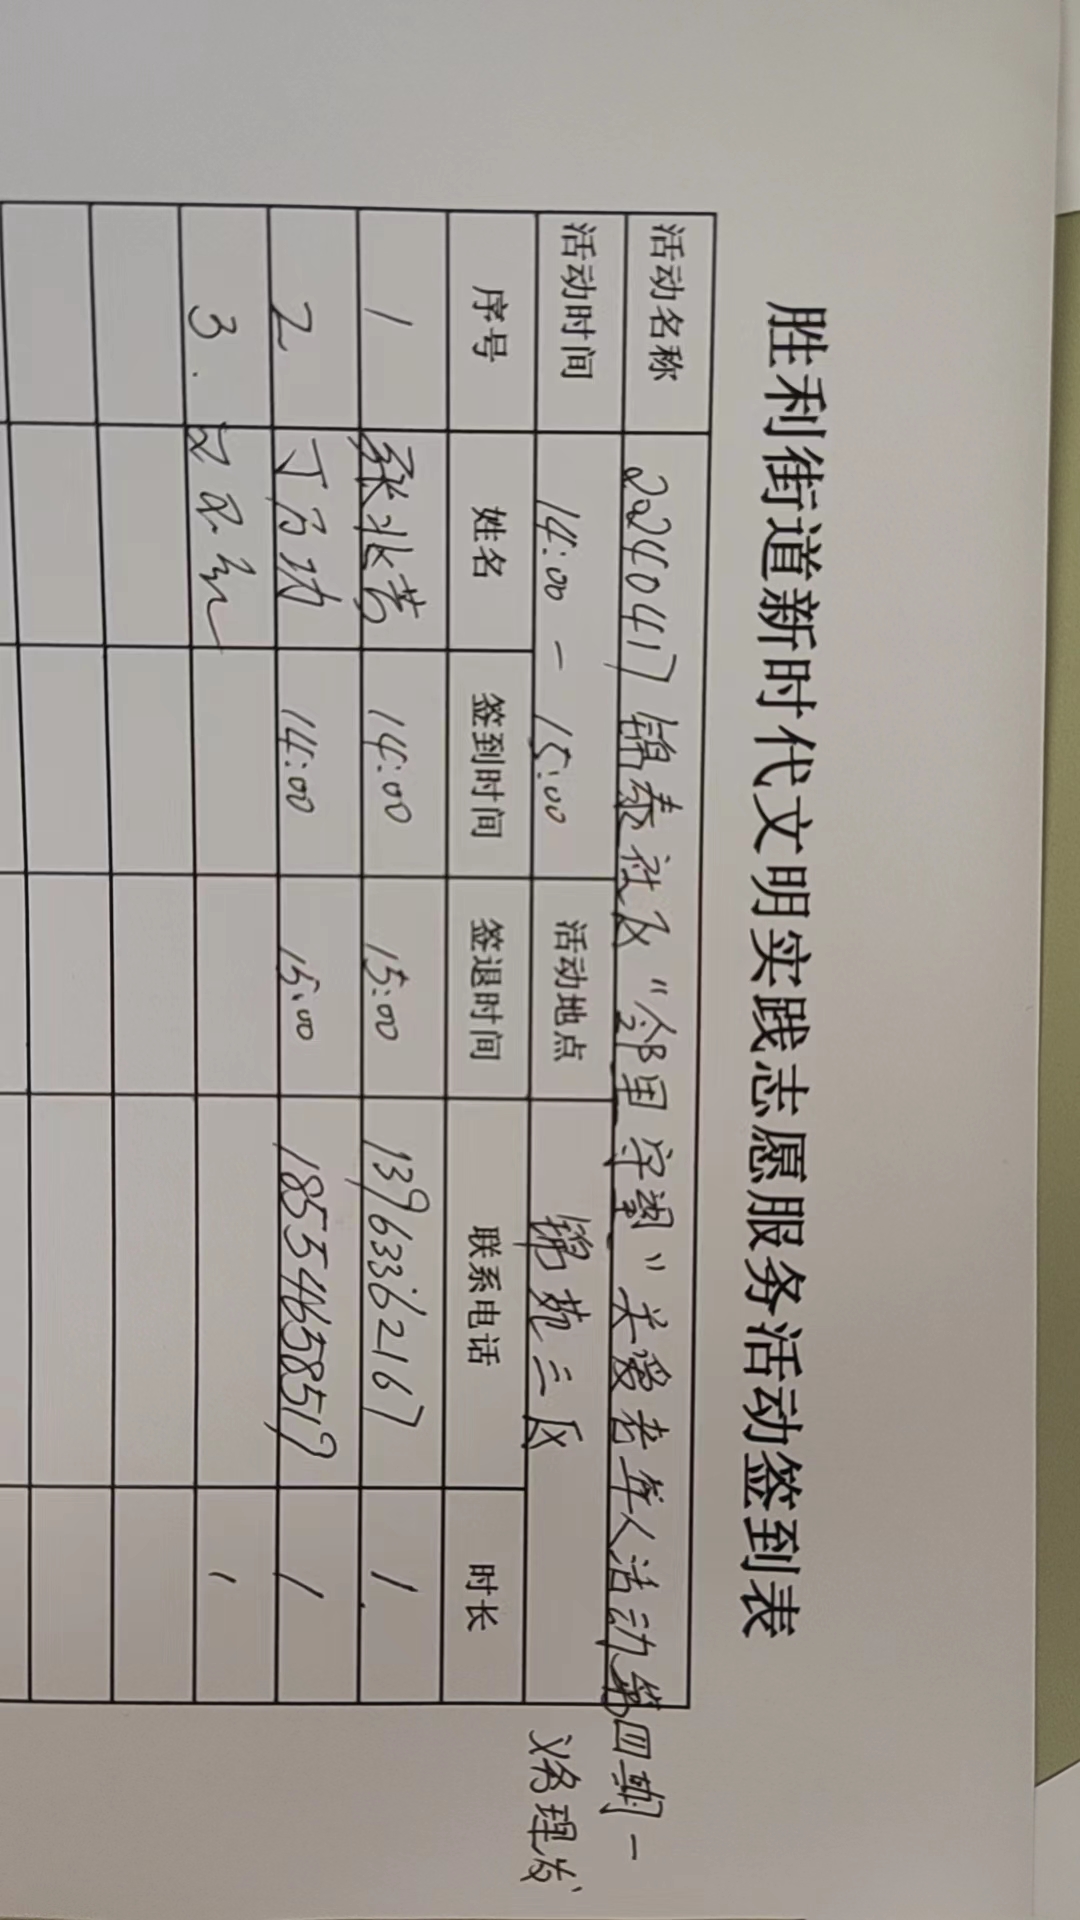 胜利街道新时代文明实践志愿服务活动签到表
活动名称 20240417 锦泰社区“邻里守望”关爱老年人活动第四期一
义务理发
活动时间 14:00 - 15:00 活动地点 锦苑三区
序号 姓名 签到时间 签退时间 联系电话 时长
1 张兆芳 14:00 15:00 13963362167 1.
2 丁 14:00 15:00 18554658519 1
3. 1